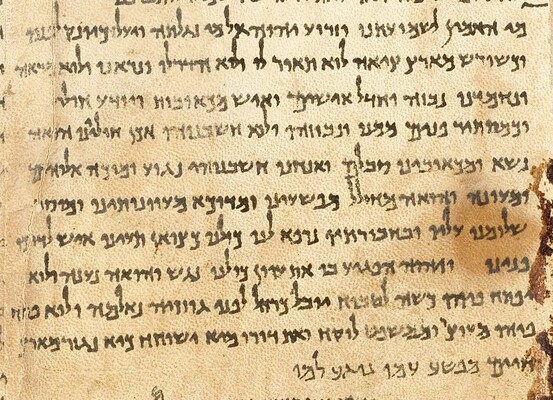 מי האמין לשמועתנו וזרוע יהוה אל מי נגלתה ויעל כיונק לפניו
וכשורש מארץ ציה לוא תאור לו ולא הדר לו ונראנו ולא מראה
ונחמדנו נבזה וחדל אישים ואיש מכאובות ויודע חולי
וכמסתיר פנים ממנו ונבוזהו ולא חשבנוהו אכן חוליינו הואה
נשא ומכאובינו סבלם ואנחנו חשבנוהו נגוע ומוכה אלוהים
ומעונה והואה מחולל מפשעינו ומדוכא מעוונותינו ומוסר
שלומנו עליו ובחבורתיו נרפא לנו כולנו כצואן תעינו איש לדרכו
פנינו ויהוה הפגיע בו את עוון כולנו נגש והואה נענה ולוא
יפתח פיהו כשה לטבוח יובל כרחל לפני גוזזיה נאלמה ולוא פתח
פיהו מעוצר ומשפט לוקח ואת דורו מיא ישוחח כיא נגזר מארץ
חיים מפשע עמו נוגע למו